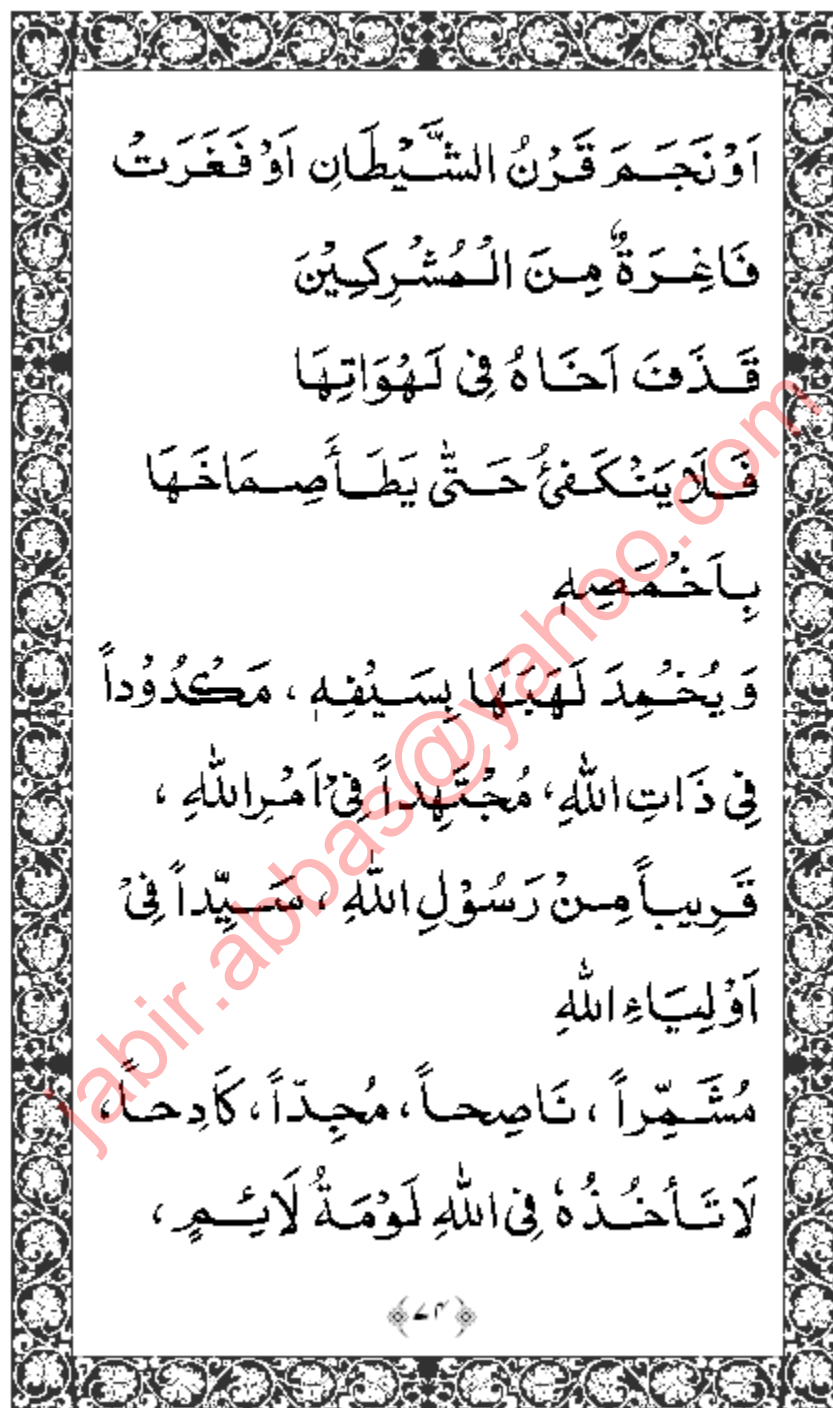 اَوْ نَجَمَ قَرْنُ الشَّيْطَانِ اَوْ فَغَرَتْ
فَاغِرَةٌ مِنَ الْمُشْرِكِيْنَ
قَذَفَ اَخَاهُ فِيْ لَهَوَاتِهَا
فَلَا يَنْكَفِئُ حَتّٰى يَطَأَ صِمَاخَهَا
بِاَخْمَصِهٖ
وَ يُخْمِدَ لَهَبَهَا بِسَيْفِهٖ ، مَكْدُوْداً
فِيْ ذَاتِ اللّٰهِ، مُجْتَهِداً فِيْ اَمْرِ اللّٰهِ ،
قَرِيباً مِنْ رَسُوْلِ اللّٰهِ ، سَيِّداً فِيْ
اَوْلِيَاءِ اللّٰهِ
مُشَمِّراً ، نَاصِحاً ، مُجِدّاً ، كَادِحاً ،
لَا تَأخُذُهٗ فِي اللّٰهِ لَوْمَةُ لَائِمٍ ،
﴿۷۴﴾
jabir.abbas@yahoo.com